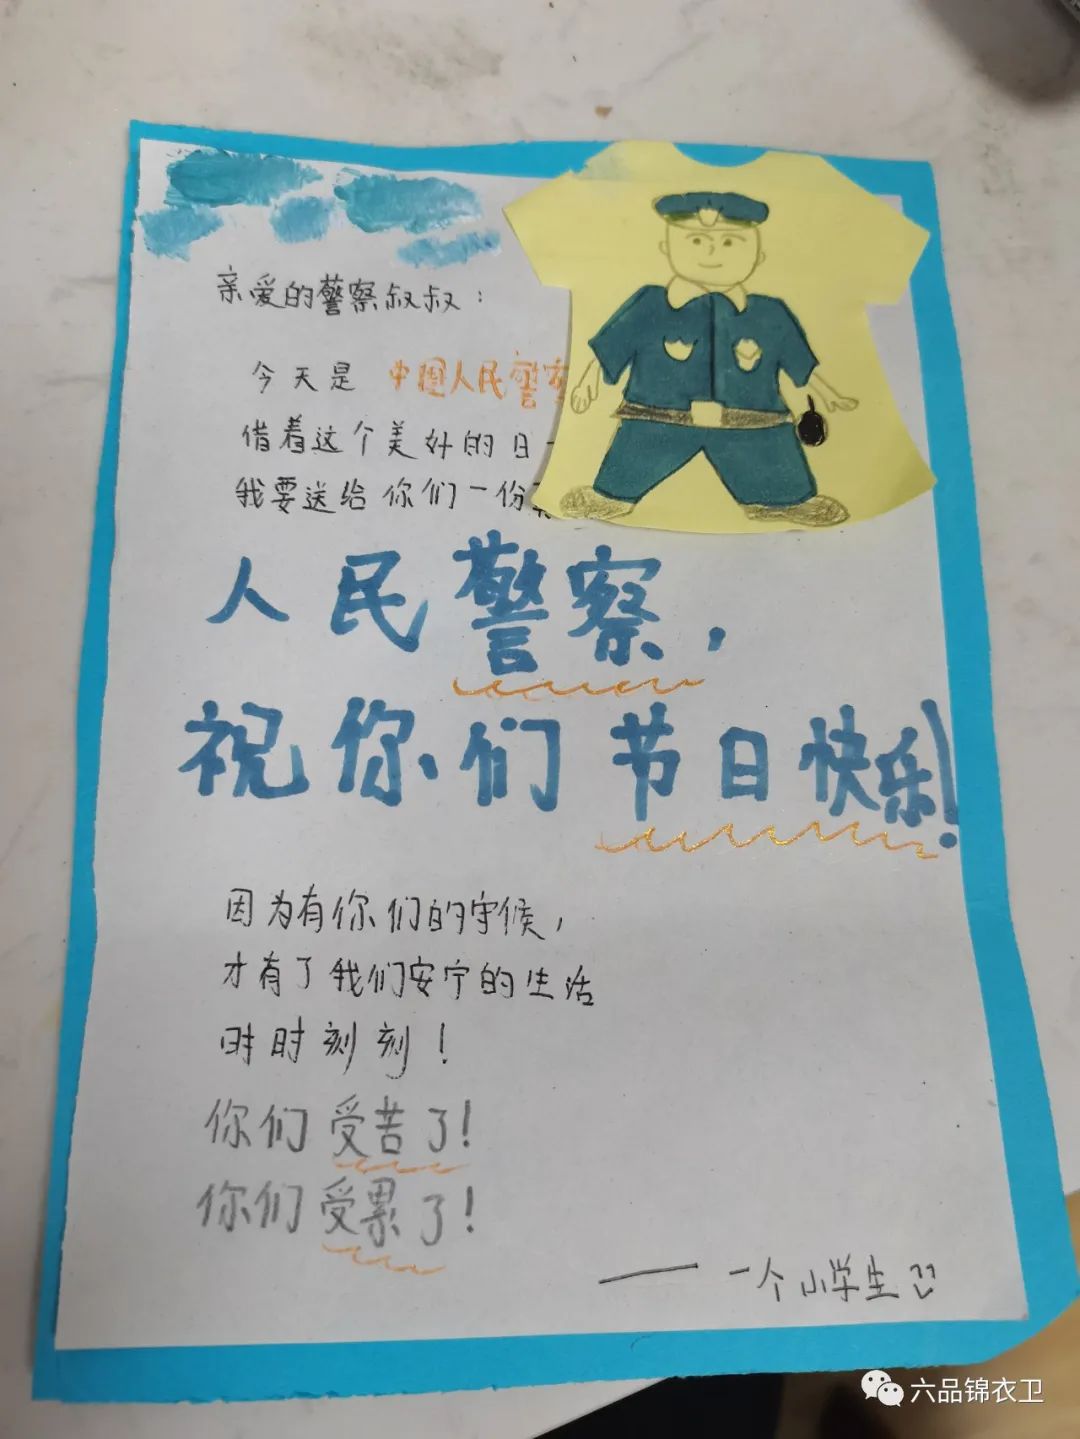 亲爱的警察叔叔：
今天是 中国人民警察
借着这个美好的日
我要送给你们一份
人民警察，
祝你们节日快乐！
因为有你们的守候，
才有了我们安宁的生活
时时刻刻！
你们受苦了！
你们受累了！
—— 一个小学生
六品锦衣卫